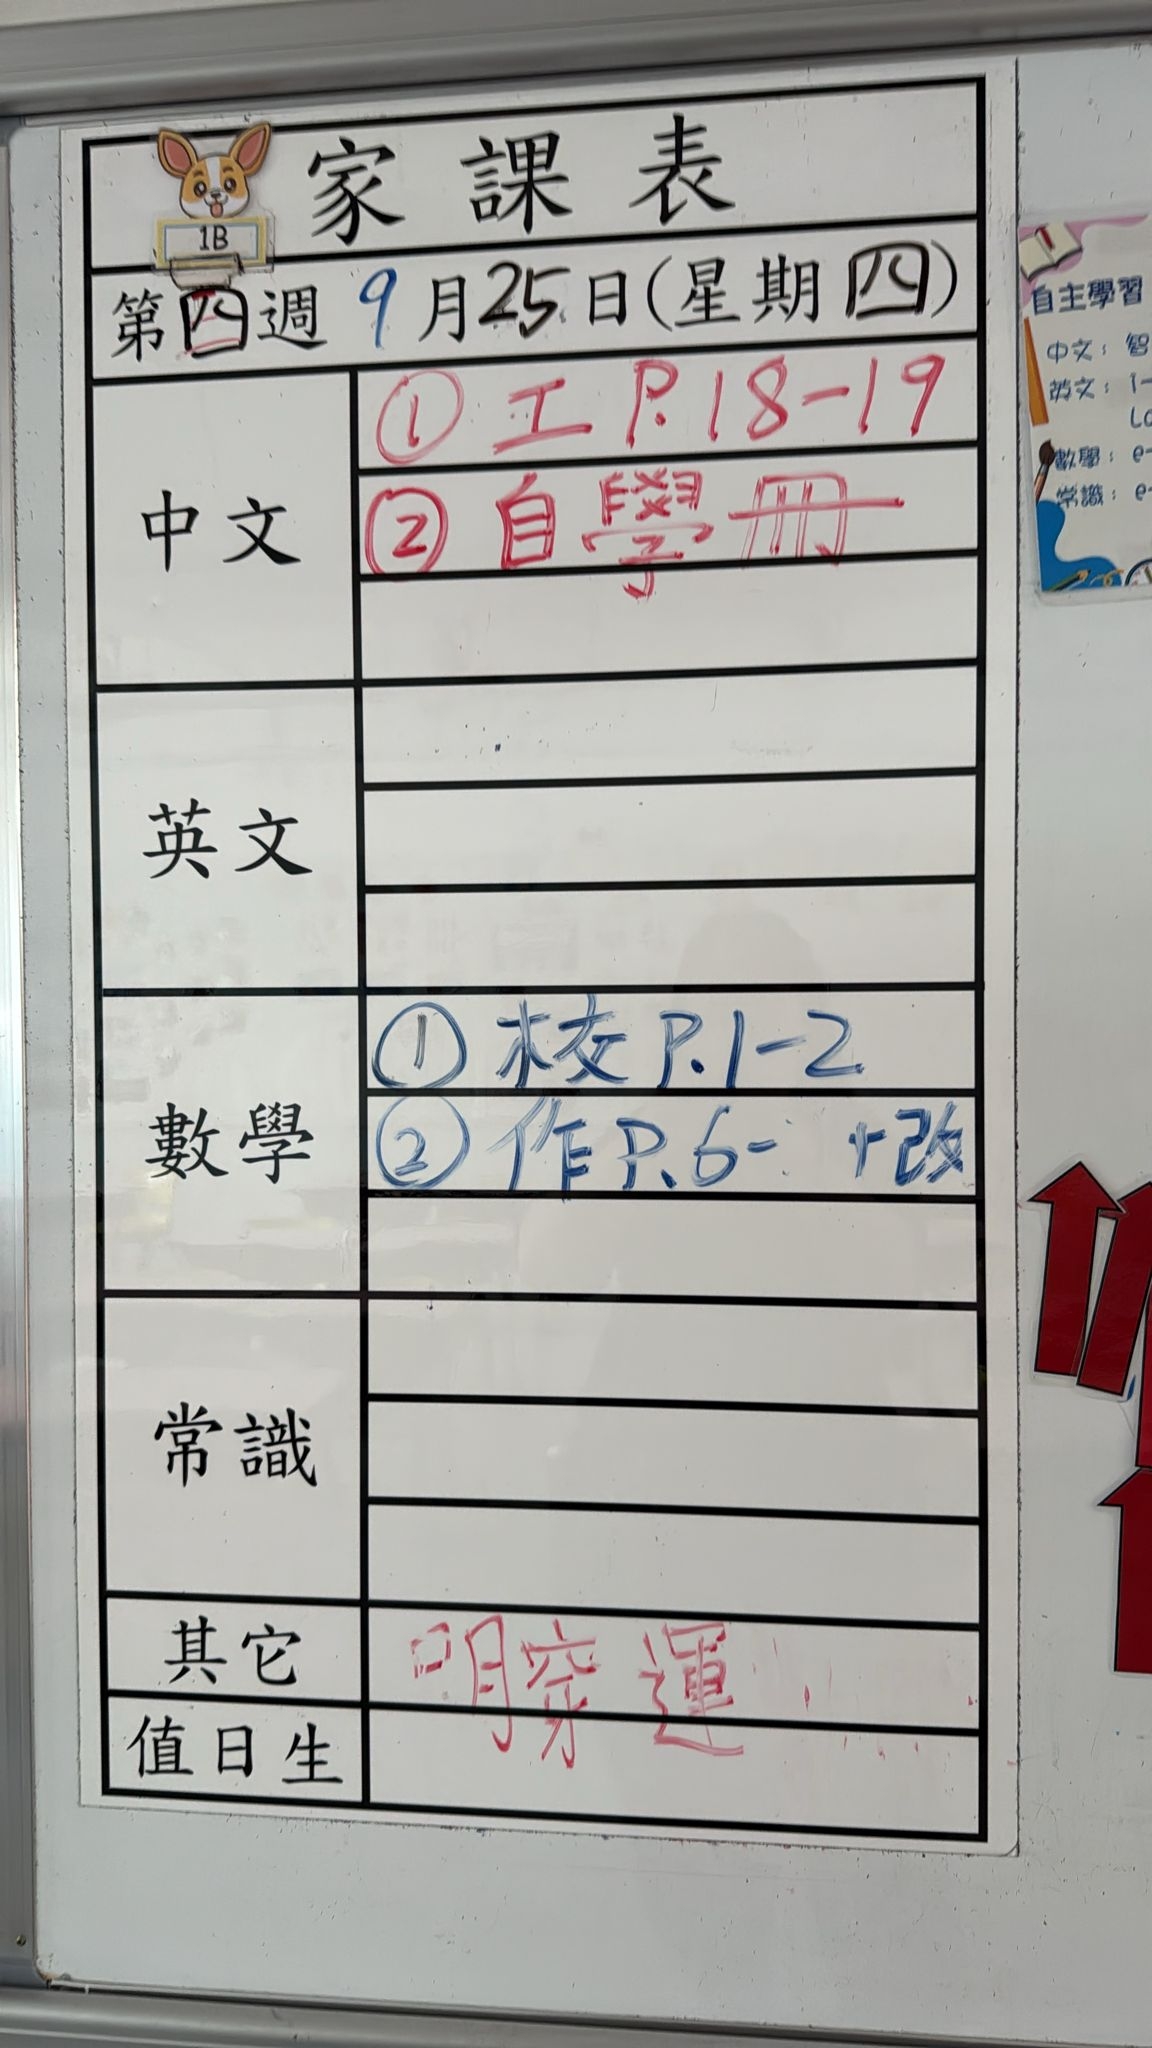 家課表
1B
第四週 9月25日(星期四)
中文
① 工 P.18-19
② 自學冊
英文
數學
① 校 P.1-2
② 作 P.6- +改
常識
其它
明穿運
值日生
自主學習
中文：智
英文：i-
數學：e-
常識：e-